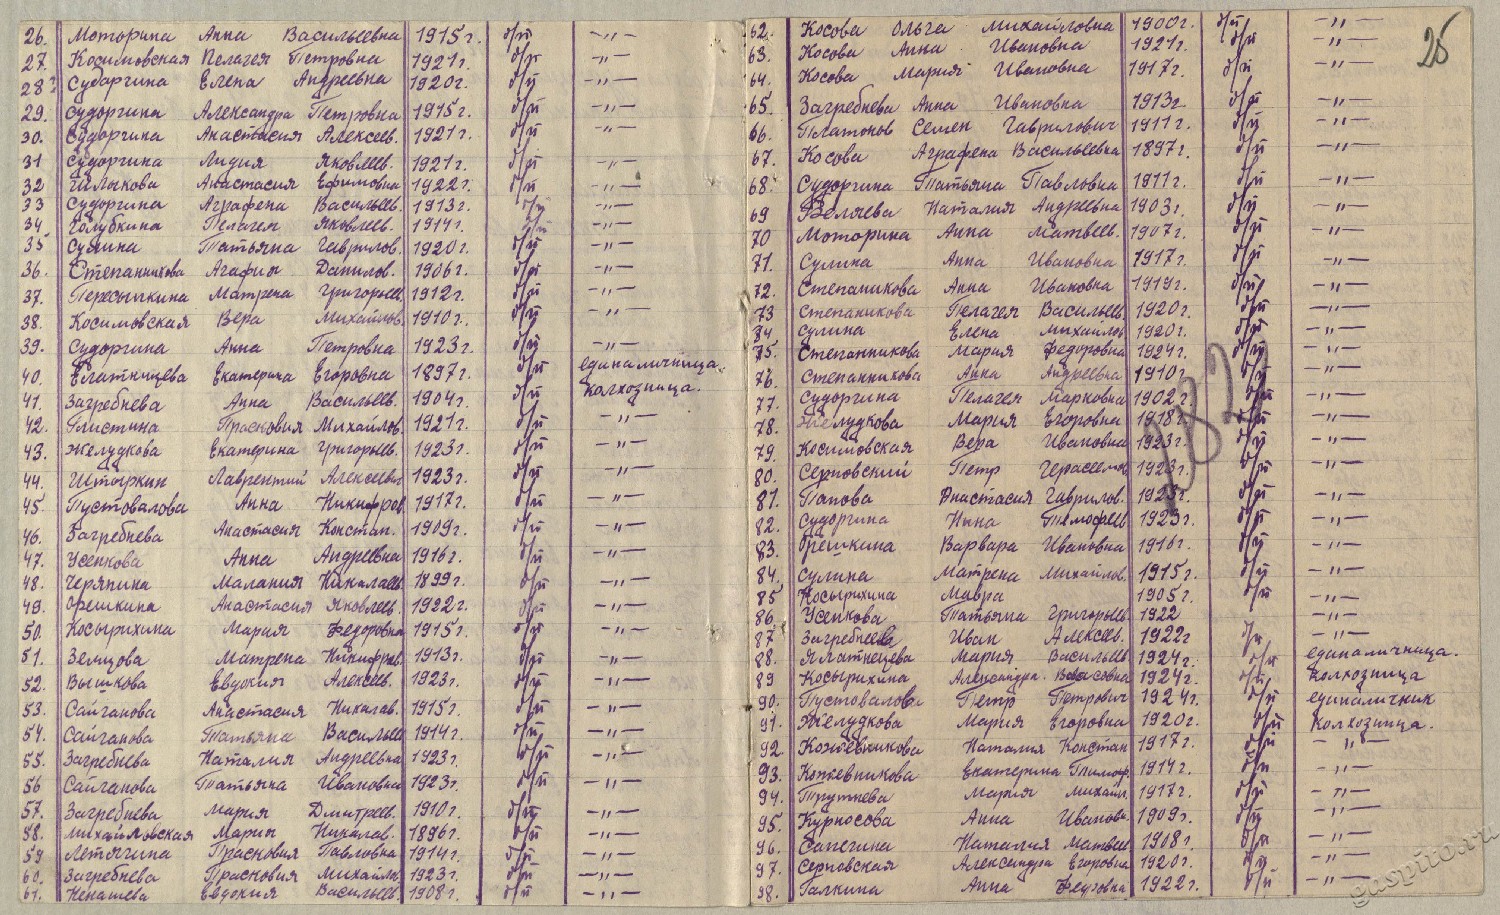 26. Моторина Анна Васильевна 1915г. б/п —„—
27. Косимовская Пелагея Петровна 1921г. б/п —„—
28. Сударгина Елена Андреевна 1920г. б/п —„—
29. Судоргина Александра Петровна 1915г. б/п —„—
30. Судоргина Анастасия Алексеев. 1921г. б/п —„—
31 Судоргина Лидия Яковлев. 1921г. б/п —„—
32 Анастасия Ефимовна 1922г. б/п —„—
33 Судоргина Аграфена Васильев. 1913г. б/п —„—
34. Голубкина Пелагея Яковлев. 1914г. б/п —„—
35 Сулина Татьяна Гаврилов. 1920г. б/п —„—
36. Степанникова Агафия Данилов. 1906г. б/п —„—
37. Пересыпкина Матрена Григорьев. 1912г. б/п —„—
38. Косимовская Вера Михайлов. 1910г. б/п —„—
39. Судоргина Анна Петровна 1923г. б/п —„—
40. Елатницева Екатерина Егоровна 1897г. б/п единаличница.
41. Загребнева Анна Васильев. 1904г. б/п колхозница.
42. Глистина Прасковия Михайлов. 1921г. б/п —„—
43. Желудкова Екатерина Григорьев. 1923г. б/п —„—
44. Штыркин Лаврентий Алексеевич 1923г. б/п —„—
45. Пустовалова Анна Никифров. 1917г. б/п —„—
46. Загребнева Анастасия Констан. 1909г. б/п —„—
47. Усенкова Анна Андреевна 1916г. б/п —„—
48. Черяпина Малания Николаев. 1899г. б/п —„—
49. Орешкина Анастасия Яковлев. 1922г. б/п —„—
50. Косырихина Мария Федоровна 1915г. б/п —„—
51. Земцова Матрена Никифров. 1913г. б/п —„—
52. Вышкова Евдокия Алексеев. 1923г. б/п —„—
53. Сайганова Анастасия Никалав. 1915г. б/п —„—
54. Сайганова Татьяна Васильев 1914г. б/п —„—
55. Загребнева Наталия Андреевна 1923г. б/п —„—
56 Сайганова Татьяна Ивановна 1923г. б/п —„—
57. Загребнева Мария Дмитреев. 1910г. б/п —„—
58. Михайловская Мария Никалав. 1896г. б/п —„—
59 Летягина Прасковия Павловна 1914г. б/п —„—
60. Загребнева Прасковия Михайл. 1923г. б/п —„—
61. Ненашева Евдокия Васильев. 1908г. б/п —„—
25
62. Косова Ольга Михайловна 1900г. б/п —„—
63. Косова Анна Ивановна 1921г. б/п —„—
64. Косова Мария Ивановна 1917г. б/п —„—
65. Загребнева Анна Ивановна 1913г. б/п —„—
66. Платонов Семен Гаврилович 1911г. б/п —„—
67. Косова Аграфена Васильевна 1897г. б/п —„—
68. Судоргина Татьяна Павловна 1911г. б/п —„—
69 Беляева Наталия Андреевна 1903г. б/п —„—
70 Моторина Анна Матвеев. 1907г. б/п —„—
71. Сулина Анна Ивановна 1917г. б/п —„—
72. Степаникова Анна Ивановна 1919г. б/п —„—
73 Степаникова Пелагея Васильев. 1920г. б/п —„—
74 Сулина Елена Михайлов 1920г. б/п —„—
75. Степанникова Мария Федоровна 1924г. б/п —„—
76. Степанникова Анна Андреевна 1910г. б/п —„—
77. Судоргина Пелагея Марковна 1902г. б/п —„—
78. Желудкова Мария Егоровна 1918г. б/п —„—
79. Косимовская Вера Ивановна 1923г. б/п —„—
80. Серповский Петр Герасемов 1923г. б/п —„—
81. Папова Анастасия Гаврилов. 1923г. б/п —„—
82. Судоргина Нина Тимофеев 1923г. б/п —„—
83. Орешкина Варвара Ивановна 1916г. б/п —„—
84. Сулина Матрена Михайлов. 1915г. б/п —„—
85 Косырихина Мавра 1905г. б/п —„—
86. Усенкова Татьяна Григорьев. 1922 —„—
87 Загребнеева Иван Алексеев. 1922г б/п —„—
88. Ялатнецева Мария Васильев 1924г. б/п единаличница.
89 Косырихина Александра Васовна 1924г. б/п колхозница
90. Пустовалова Петр Петрович 1924г. б/п единаличник
91. Желудкова Мария Егоровна 1920г. б/п колхозница.
92. Кожевникова Наталия Констан 1917г. б/п —„—
93. Кожевникова Екатерина Тимоф. 1914г. б/п —„—
94. Трутнева Мария Михайл. 1917г. б/п —„—
95. Курносова Анна Иванова 1909г. б/п —„—
96. Сапегина Наталия Матвеев 1908г. б/п —„—
97. Серповская Александра Егоровна 1920г. б/п —„—
98. Галкина Анна Федровна 1922г. б/п —„—
182
gaspito.ru